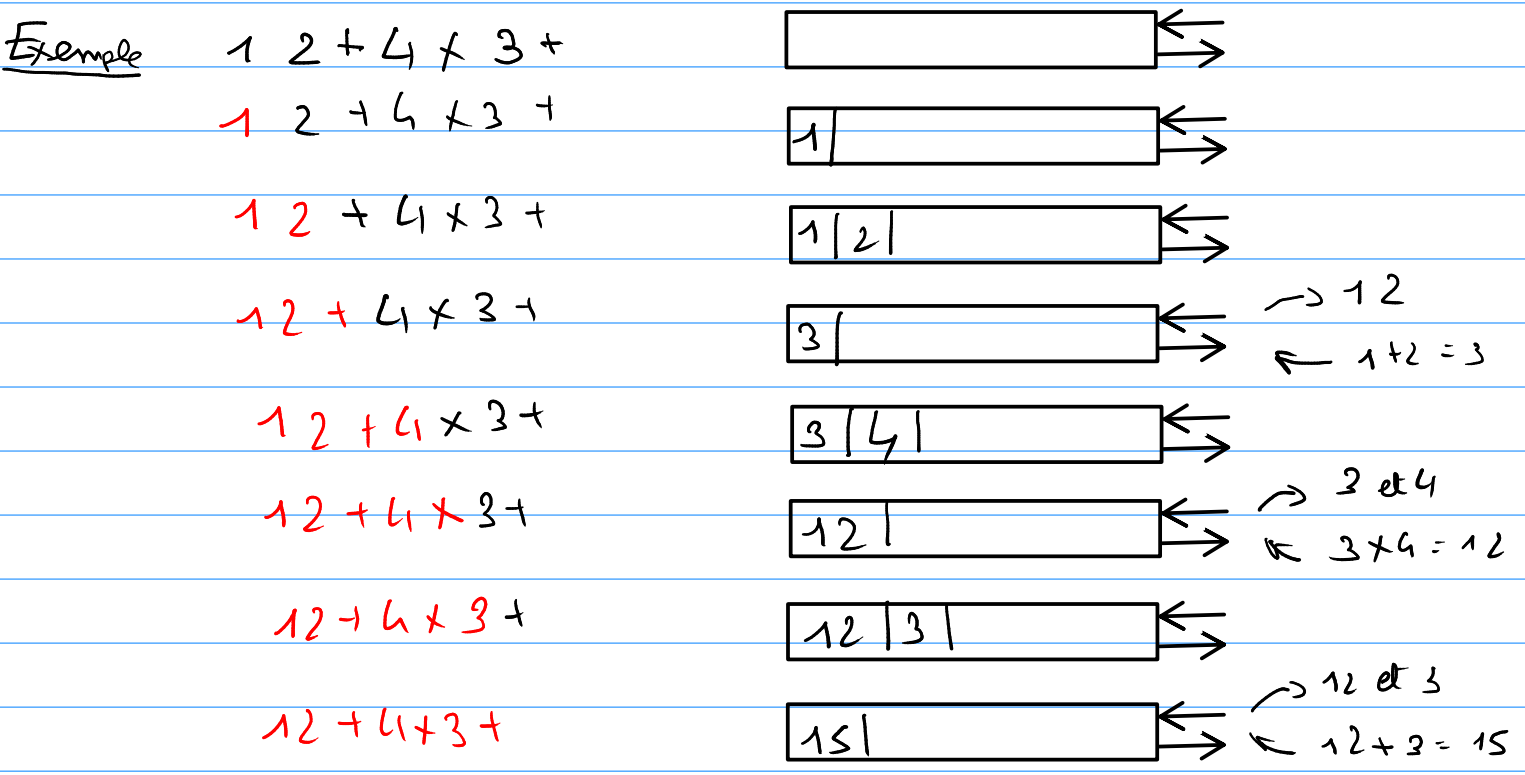 Exemple 1 2 + 4 × 3 +
1 2 + 4 × 3 + 1
1 2 + 4 × 3 + 1 2
1 2 + 4 × 3 + 3 → 1 2
← 1 + 2 = 3
1 2 + 4 × 3 + 3 4
1 2 + 4 × 3 + 12 → 3 et 4
← 3 × 4 = 12
1 2 + 4 × 3 + 12 3
1 2 + 4 × 3 + 15 → 12 et 3
← 12 + 3 = 15